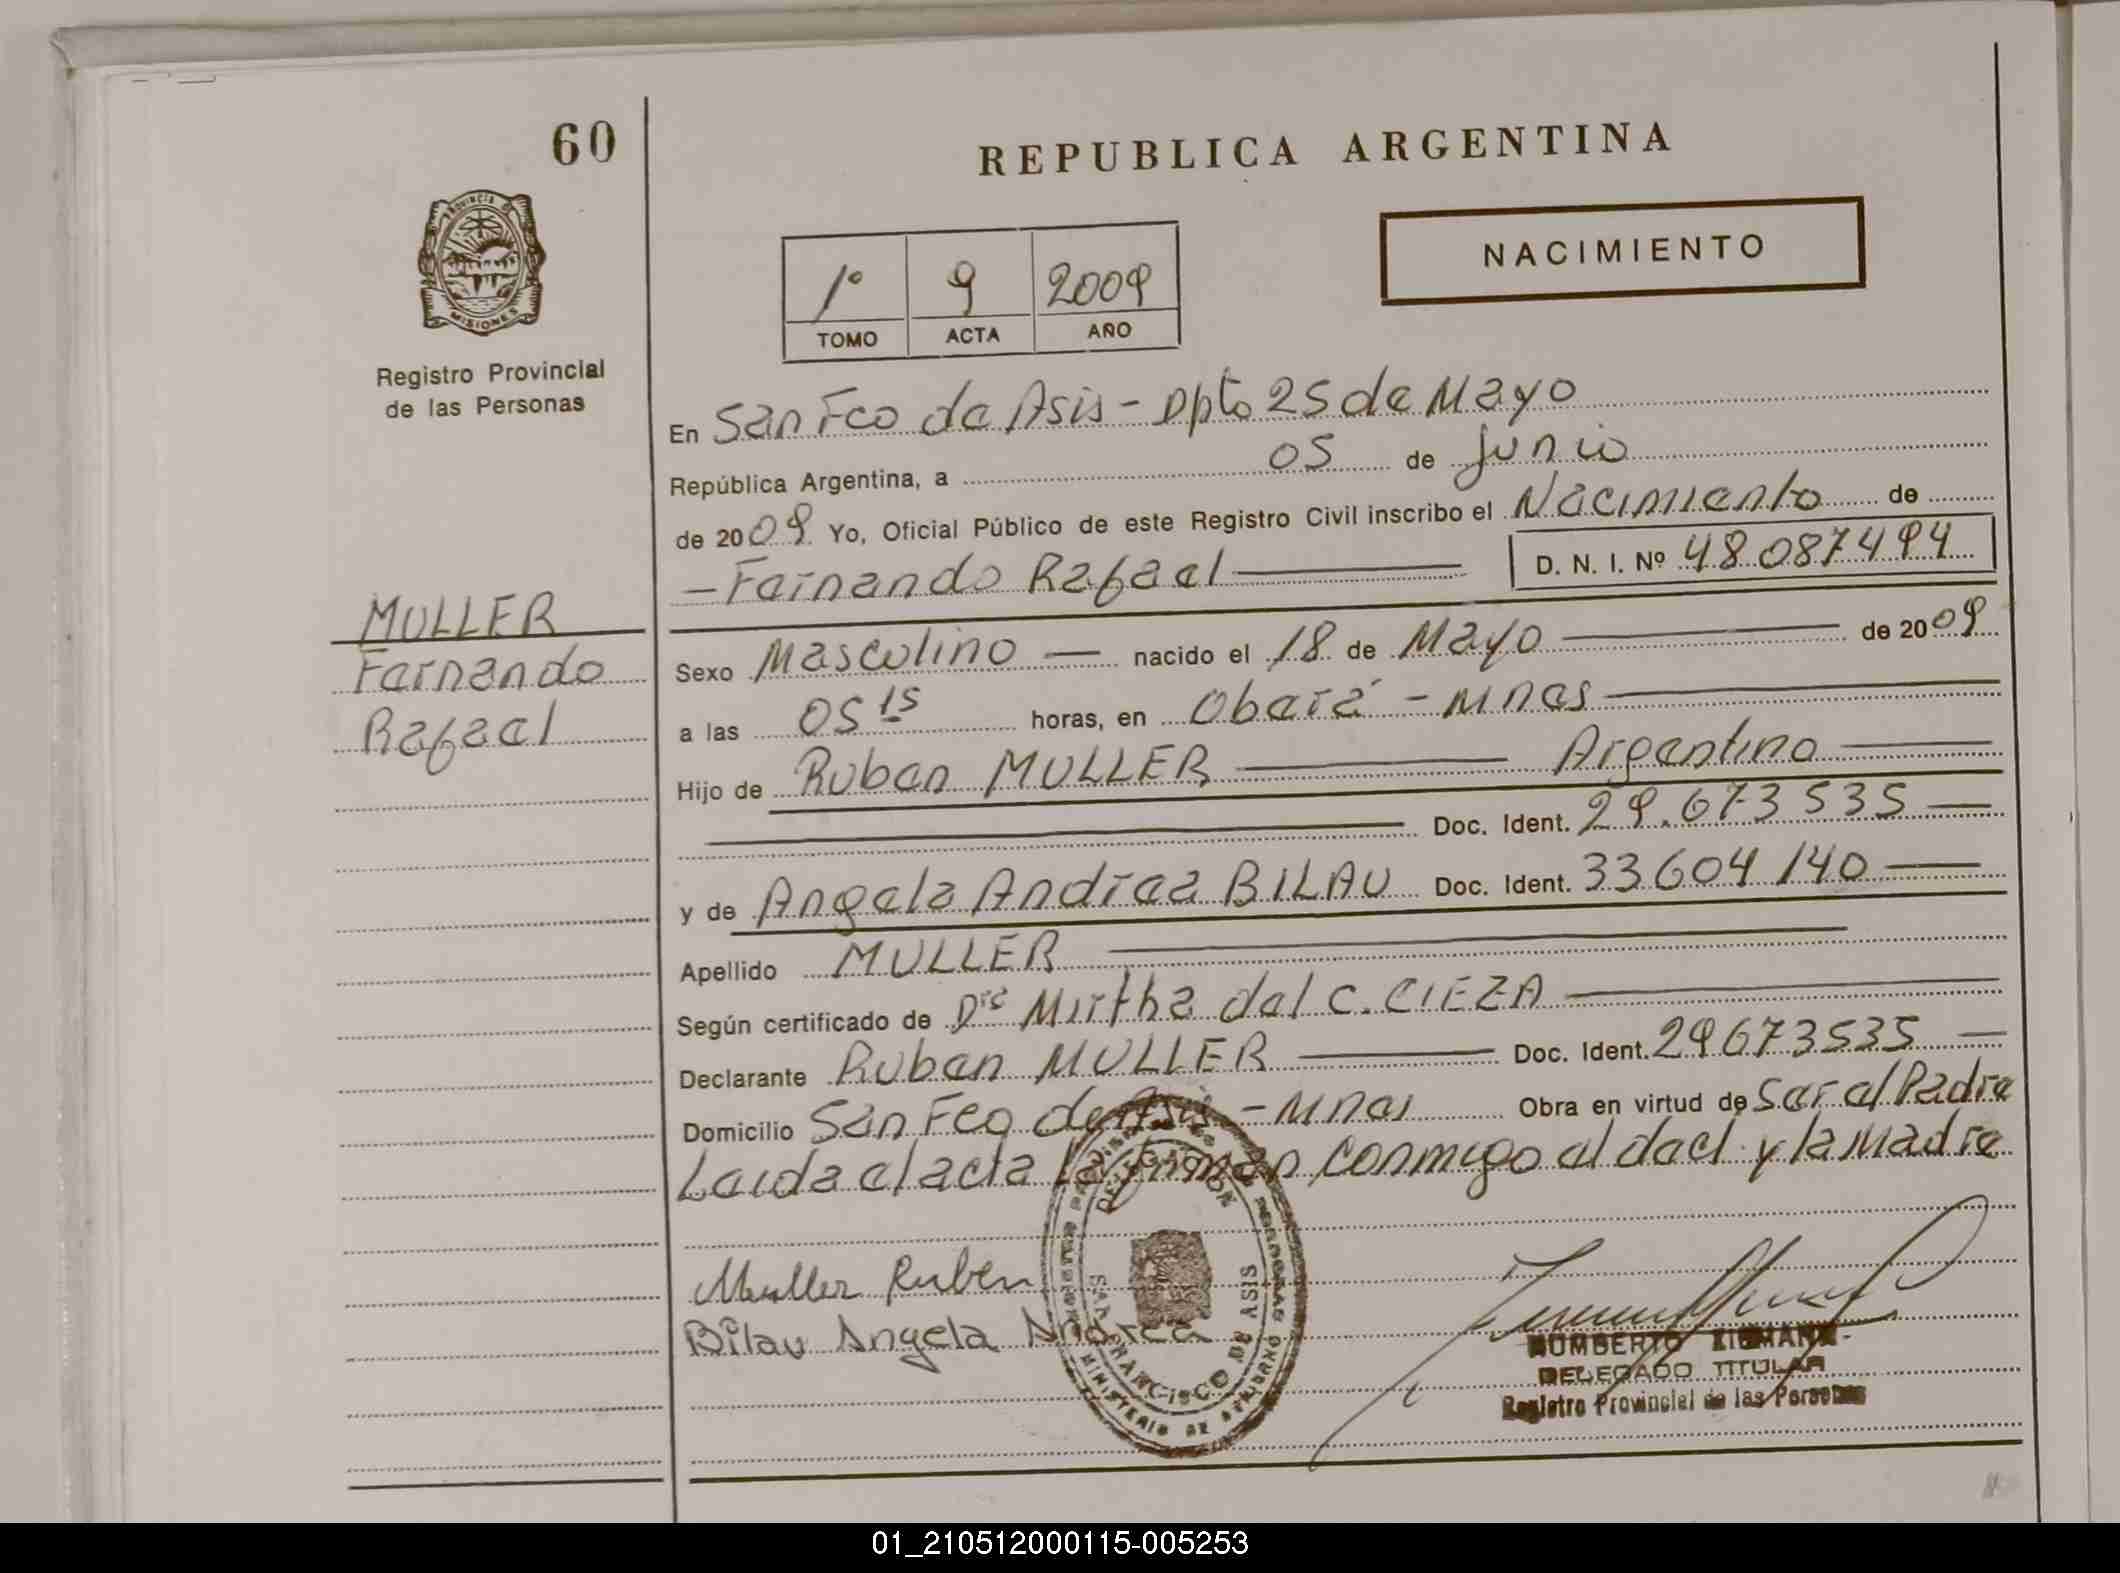 60
REPUBLICA ARGENTINA
PROVINCIA DE
MISIONES
NACIMIENTO
1º 9 2009
TOMO ACTA AÑO
Registro Provincial
de las Personas
En San Fco de Asis - Dpto 25 de Mayo
República Argentina, a 05 de Junio
de 2009 Yo, Oficial Público de este Registro Civil inscribo el Nacimiento de
D. N. I. Nº 48.087494
- Fernando Rafael
MULLER
Fernando
Rafael
Sexo Masculino nacido el 18 de Mayo de 2009
a las 05 15 horas, en Oberá - Mnes
Hijo de Ruben MULLER Argentino
Doc. Ident. 29.673535
y de Angela Andrea BILAU Doc. Ident. 33604140
Apellido MULLER
Según certificado de Dra Mirtha del C. CIEZA
Declarante Ruben MULLER Doc. Ident. 29673535
Domicilio San Fco de Asis - Mnes Obra en virtud de Ser el Padre
Leida el acta la firman conmigo el decl. y la Madre
Muller Ruben
Bilau Angela Andrea
DELEGACION
SAN FRANCISCO DE ASIS
MINISTERIO DE GOBIERNO
HUMBERTO
DELEGADO TITULAR
Registro Provincial de las Personas
01_210512000115-005253